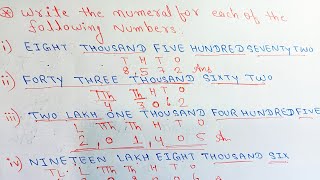 ⊗ Write the numeral for each of the
following Numbers.
i) EIGHT THOUSAND FIVE HUNDRED SEVENTY TWO
T H T O
8 5 7 2 Ans
ii) FORTY THREE THOUSAND SIXTY TWO
TTh Th H T O
4 3 0 6 2
iii) TWO LAKH ONE THOUSAND FOUR HUNDRED FIVE
L TTh Th H T O
2, 0 1, 4 0 5 An
iv) NINETEEN LAKH EIGHT THOUSAND SIX
TL L TTh Th H T O